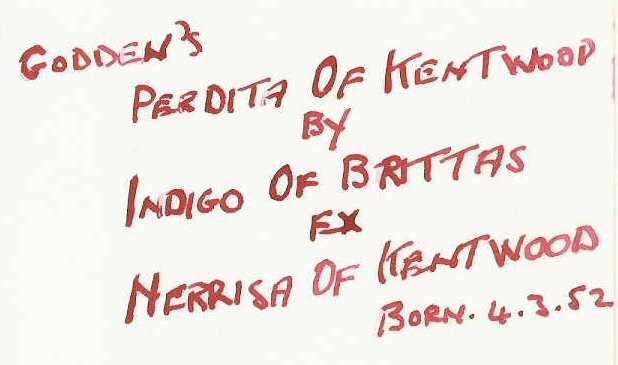 GODDEN'S
PERDITA OF KENTWOOD
BY
INDIGO OF BRITTAS
EX
NERRISA OF KENTWOOD
BORN. 4.3.52